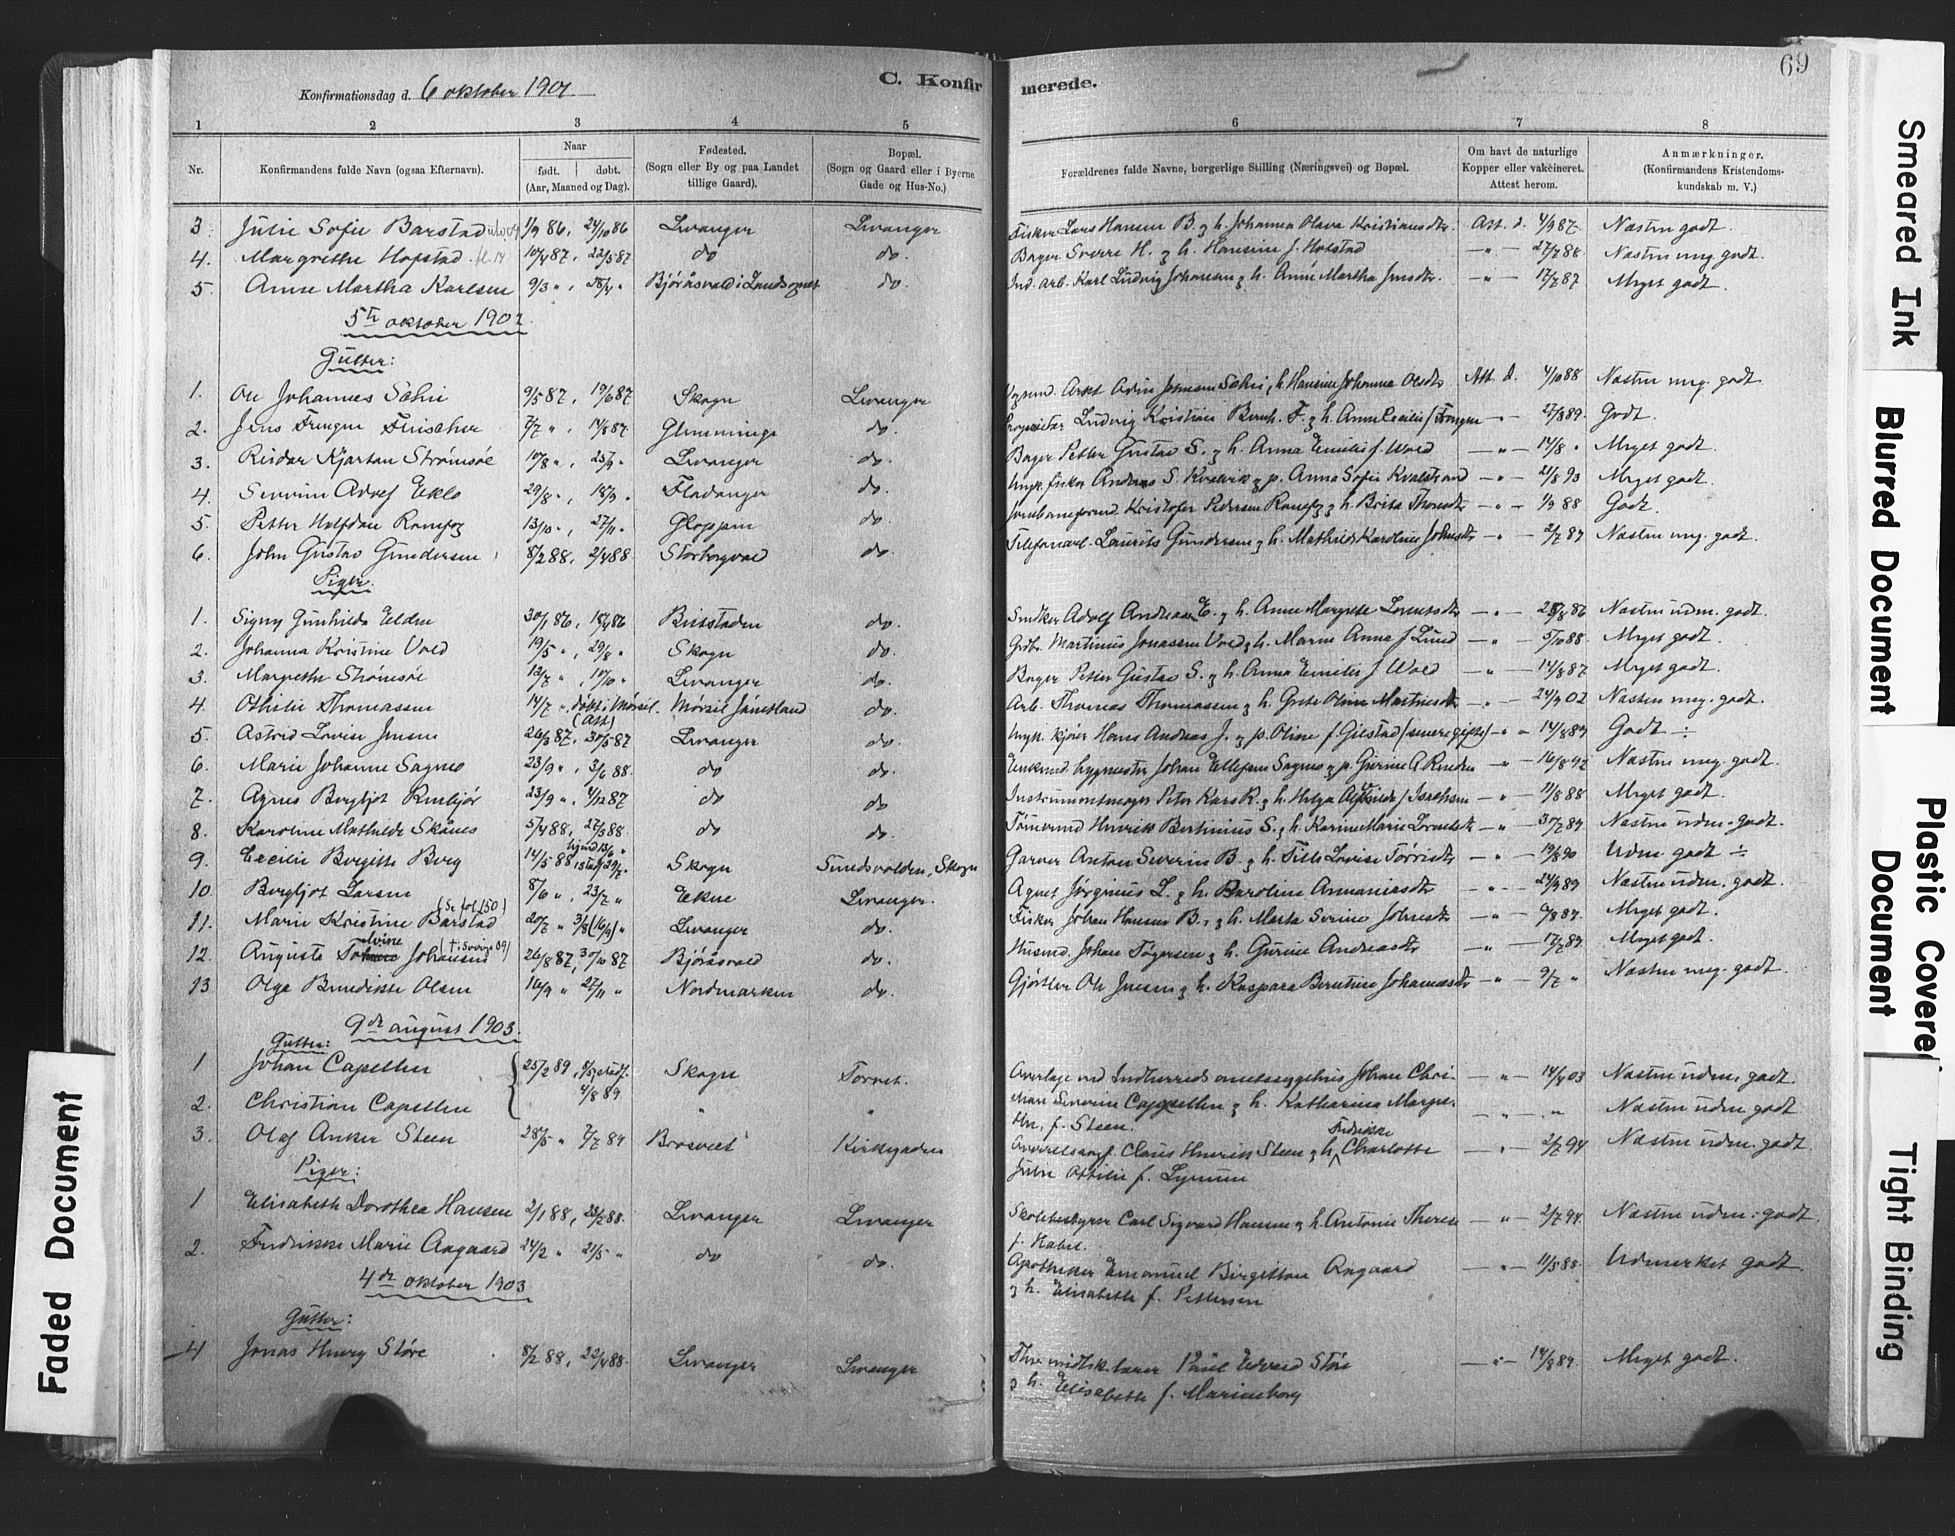 69
C. Konfirmerede.
Konfirmationsdag d. 6 oktober 1901
1 2 3 4 5 6 7 8
Nr.
Konfirmandens fulde Navn (ogsaa Efternavn).
Naar
født. døbt.
(Aar, Maaned og Dag).
Fødested.
(Sogn eller By og paa Landet
tillige Gaard).
Bopæl.
(Sogn og Gaard eller i Byerne
Gade og Hus-No.)
Forældrenes fulde Navne, borgerlige Stilling (Næringsvei) og Bopæl.
Om havt de naturlige
Kopper eller vakcineret.
Attest herom.
Anmærkninger.
(Konfirmandens Kristendoms-
kundskab m. V.)
3. Julie Sofie Barstad 1/9 86, 24/10 86 Levanger Levanger Fisker Lars Hansen B. & h. Johanna Olava Kristiansdtr. Att. d. 4/9 87. Næsten godt.
4. Margrethe Hofstad 10/4 87, 22/5 87 do do. Bager Sverre H. & h. Hansine f. Hofstad - " - 27/7 88 Næsten meg. godt.
5. Anne Martha Karlsen 9/3 ", " Bjøråsvald i Landsognet do. Ind. arb. Karl Ludvig Johansen & h. Anne Martha Jensdtr. - " - 17/7 87 Meget godt.
5te oktober 1902.
Gutter:
1. Ole Johannes Sæhti 9/5 87, 19/6 87 Skogn Levanger Johnsen & h. Hansine Johanna Olsdtr Att. d. 4/10 88 Næsten meg. godt
2. Jens Frengen Finschn 7/7 ", 14/8 87 Glemminge do. Proprietær Ludvig Kristian Bernh. F. & h. Anne Cecilie f. Frengen - " - 27/9 89. Godt.
3. Reidar Kjartan Strømsøe 10/8 ", 25/9 " Levanger do. Bager Petter Gustav S. & h. Anna Emilie f. Wold - " - 14/8 " Meget godt.
4. Severin Adolf Eklo 29/8 ", 18/9 " Fladanger do. Ungk. fisker Andreas S. Kvelvik & p. Anna Sofie Kvalstrand - " - 21/8 93 Meget godt.
5. Petter Halfdan Ramfog 13/10 ", 27/11 " Gloppen do. Jernbaneformd. Kristofer Pedersen & h. Brita Thoresdtr - " - 1/9 88 Godt.
6. John Gustav Gundersen 8/2 88, 2/4 88 do Telefonarb. Laurits Gundersen & h. Mathilde Karoline Johnsdtr - " - 2/7 89 Næsten meg. godt.
Piger.
1. Signy Gunhilda Elden 30/1 86, 18/4 86 Beitstaden do. Snedker Adolf Andreas E. & h. Anne Margrete Lorentsdtr - " - Næsten udm. godt.
2. Johanna Kristine Vold 19/5 ", 29/8 " Skogn do. Grdbr. Martinus Jonassen Vold & h. Maren Anna f. Lund - " - 5/10 88 Meget godt.
3. Margrethe Strømsøe 12/7 ", 10/10 " Levanger do. Bager Petter Gustav S. & h. Anna Emilie f. Wold - " - 14/8 87 Meget godt.
4. Othelie Thomassen 14/7 " døbt i Mørsil. (Att) Mørsil Jämtland do. Arb. Thomas Thomassen & h. Grete Oline Martinesdtr - " - 24/9 02 Næsten meg. godt.
5. Astrid Lovise Jensen 26/3 87, 30/5 87 Levanger do. Ungk. kjører Hans Andreas J. & p. Oline f. Gilstad (senere gifte) - " - 14/8 89 Godt ÷
6. Marie Johanne Sagmo 23/9 ", 3/6 88. do do. Enkemd. bygmester Johan Ellefsen Sagmo & p. Gurine A. - " - 16/8 92 Næsten meg. godt.
7. Agnes Bergljot Renbjør 23/9 ", 4/12 87 do do Instrumentmager Peter Kars R. & h. Helga Alfhilde f. Isachsen - " - 11/8 88 Meget godt.
8. Karoline Mathilde Skånes 5/4 88, 27/5 88. do do. Tømremd Henrik Bertinius S. & h. Karine Marie Lornedtr - " - 30/7 89. Næsten udm. godt.
9. Cecilie Birgitte Berg 14/5 88 Skogn Sundsvolden, Skogn Garver Anton Severin B. & h. Lovise Tørrisdtr - " - 19/8 90 Udm. godt ÷
10. Bergljot Larsen 8/6 ", 23/7 " Ekne Levanger. Agent Jørginus L. & h. Karoline Annaniasdtr - " - 24/9 89 Næsten udm. godt.
11. Marie Kristine Barstad (Se fol. 150) 20/7 " 3/8 (16/9) " Levanger do. Fisker Johan Hansen B. & h. Marta Serine Johnsdtr - " - 6/8 87. Meget godt.
12. Auguste Johansen († Sverige 09) 26/8 87, 30/10 87 Bjøråsvald do. Husmd. Johan Tøgersen & h. Gurine Andreasdtr - " - 17/7 89 Meget godt.
13. Olga Benedikte Olsen 16/9 " 27/11 " Nordmarken do. Gjørtler Ole Jensen & h. Kaspara Berntine Johannesdtr - " - 9/7 " Næsten meg. godt.
9de august 1903.
Gutter:
1 Johan Capellen 25/2 89, 4/8 89 Skogn Torvet. Overlæge ved Indherreds amtssygehus Johan Chri-
2. Christian Capellen " " stian Severin Cappellen & h. Katharina Margre-
the, f. Steen.
- " - 14/4 03 Næsten udm. godt.
- " - " Næsten udm godt
3. Olaf Anker Steen 28/5 " 7/7 89 Brevik Kirkegaden Claus Henrik Steen & h. Fredrikke Charlotte
Julie Ottilie f. - " - 2/7 94 Næsten udm. godt.
Piger:
1 Elisabeth Dorothea Hansen 2/1 88, 28/2 88. Levanger Levanger Skolebestyrer Carl Sigvard Hansen & h. Antonie Therese
f. Habel. - " - 2/7 94. Næsten udm. godt
2. Fredrikke Marie Aagaard 24/2 " 21/5 " do do. Apotheker Emanuel Birgithon Aagaard
& h. Elisabeth f. Pettersen - " - 11/5 88. Udmerket godt.
4de oktober 1903
Gutter:
1 Jonas Henry Støre 8/2 88, 22/4 88. Levanger Levanger lærer Paul Edvard Støre
& h. Elisabeth f. Marienborg - " - 14/8 89. Meget godt.
Smeared Ink
Blurred Document
Plastic Covered Document
Tight Binding
Faded Document